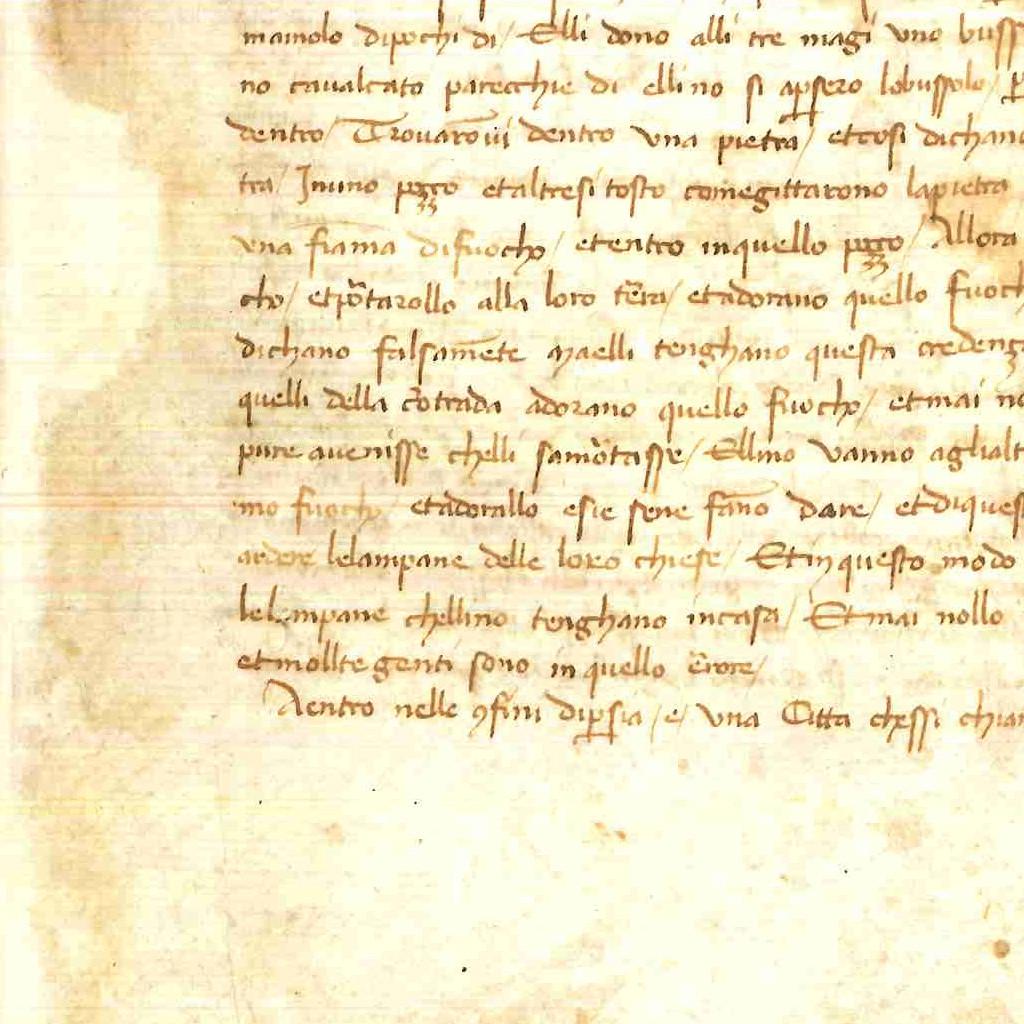 mamolo dipochi di / Elli dono alli tre magi uno buss
no caualcato parecchie di ellino si apsero lobussolo /
dentro / Trouarōui dentro una pietra / etcosi dichano
tra / Inuno pozzo etaltresi tosto comegittarono lapietra
una fiāma difuocho / etentro inquello pozzo / Allora
cho / etpōtarollo alla loro tēra / etadorano quello fuoch
dichano falsamēte Maelli tenghano questa credenza
quelli della cōtrada adorano quello fuocho / etmai no
pure auenisse chelli samōtasse / Ellino vanno aglialt
mo fuocho / etadorallo esie sene fāno dare / etdiques
ardere lelampane delle loro chiese / Etinquesto modo
lelampane chellino tenghano incasa / Etmai nollo
etmollte genti sono in quello ērore /
Aentro nelle ꝯfini dipsia / e / una Citta chessi chia